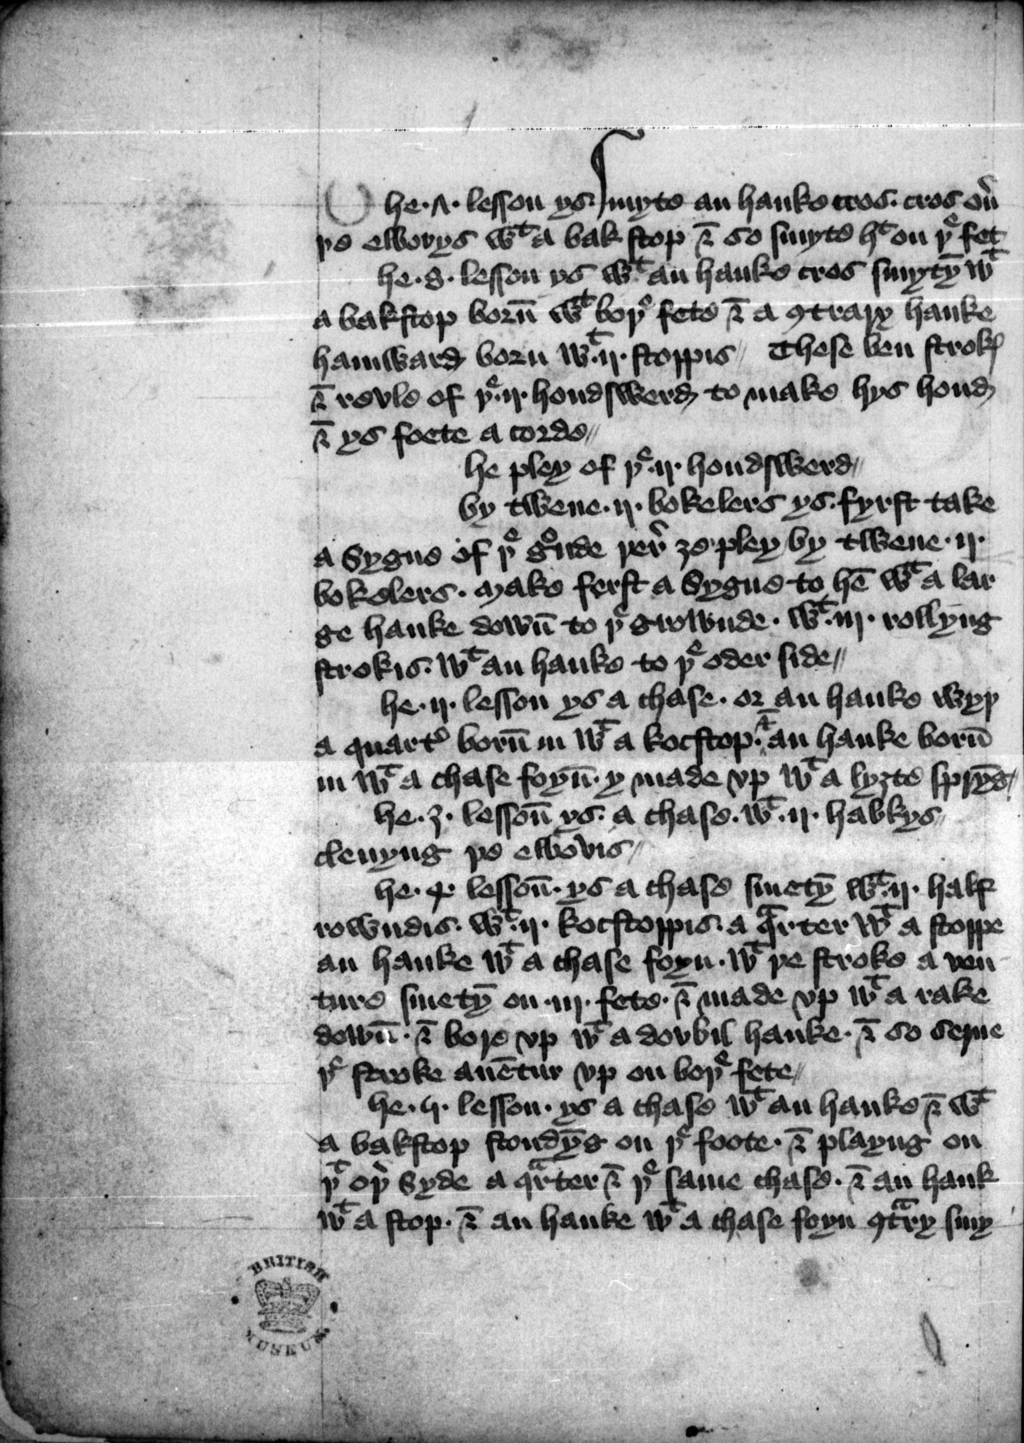 he · ʌ · lesson ys smyte an hanke cros · cros oũ
þe elbovys wᵗ a bak stop & so smyte hᵗ on yͤ fet
he · 8 · lesson ys wᵗ an hanke cros smytȳ wᵗ
a bakstop borñ wᵗ boyͤ fete & a ꝯtrary hanke
hamward born wᵗ · ij · stoppis // These ben strokꝭ
& revle of yͤ · ij · hondswerd to make hys hond
& ys foete a corde //
he pley of yͤ · ij · hondswerd //
by twene · ij · bokelers ys · fyrst take
a Sygne of yͤ gͦnde yer̃ ȝe pley by twene · ij ·
bokelers · make ferst a Sygne to hē wᵗ a lar
ge hanke dowñ to yͤ grownde · wᵗ · iij · rollyng
strokis · wᵗ an hanke to yͤ oder side //
he · ij · lesson ys a chase · or an hanke wyþ
a quartͬ borñ in wᵗ a kocstop · & an hanke borñ
in wᵗ a chase foyñ · y made vp wᵗ a lyȝte spryḡ //
he · 3 · lessoñ ys · a chase · wᵗ · ij · havkys
clenyng þe elbovis //
he · 4 · lessoñ · ys a chase smetȳ wᵗ · ij · half
rowndis · wᵗ · ij · kocstoppis · a qͬter wᵗ a stoppe
an hanke wᵗ a chase foyn · wᵗ þe stroke a ven
ture smetȳ on · iij · fete · & made vp wᵗ a rake
dowñ · & bore vp wᵗ a dovbil hanke · & so serue
yͤ stroke auētur vp on boyͤ fete //
he · 5 · lesson · ys a chase wᵗ an hanke & wᵗ
a bakstop stondȳg on yͤ foote · & playng on
yͤ oþ̃ Syde a qͬter & yͤ same chase · & an hank
wᵗ a stop · & an hanke wᵗ a chase foyn ꝯtͬry smy
BRITISH
MUSEUM